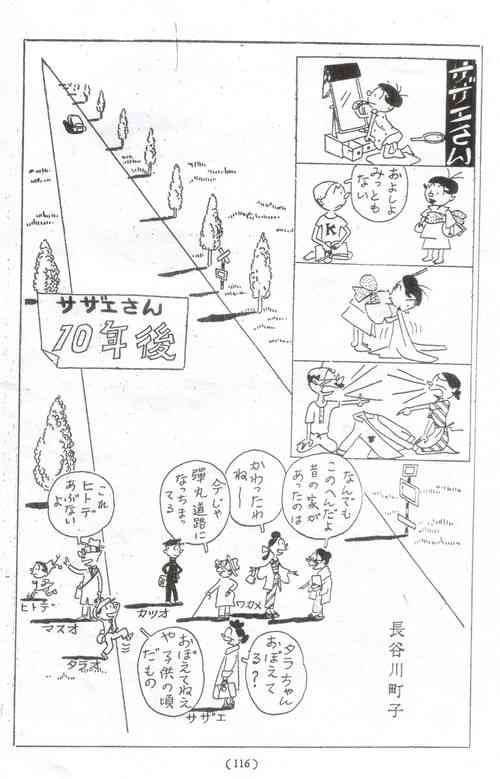 サザエさん
およしよ
みっとも
ない
K
サザエさん
10年後
なんでも
このへんだよ
昔の家が
あったのは
かわったわ
ねー
今じゃ
弾丸道路に
なっちまっ
てる
これ
ヒトデ
あぶない
よ
ヒトデ
マスオ
タラオ
カツオ
ワカメ
タラちゃん
おぼえて
る？
おぼえてねえ
や子供の頃
だもの
サザエ
長谷川町子
(116)